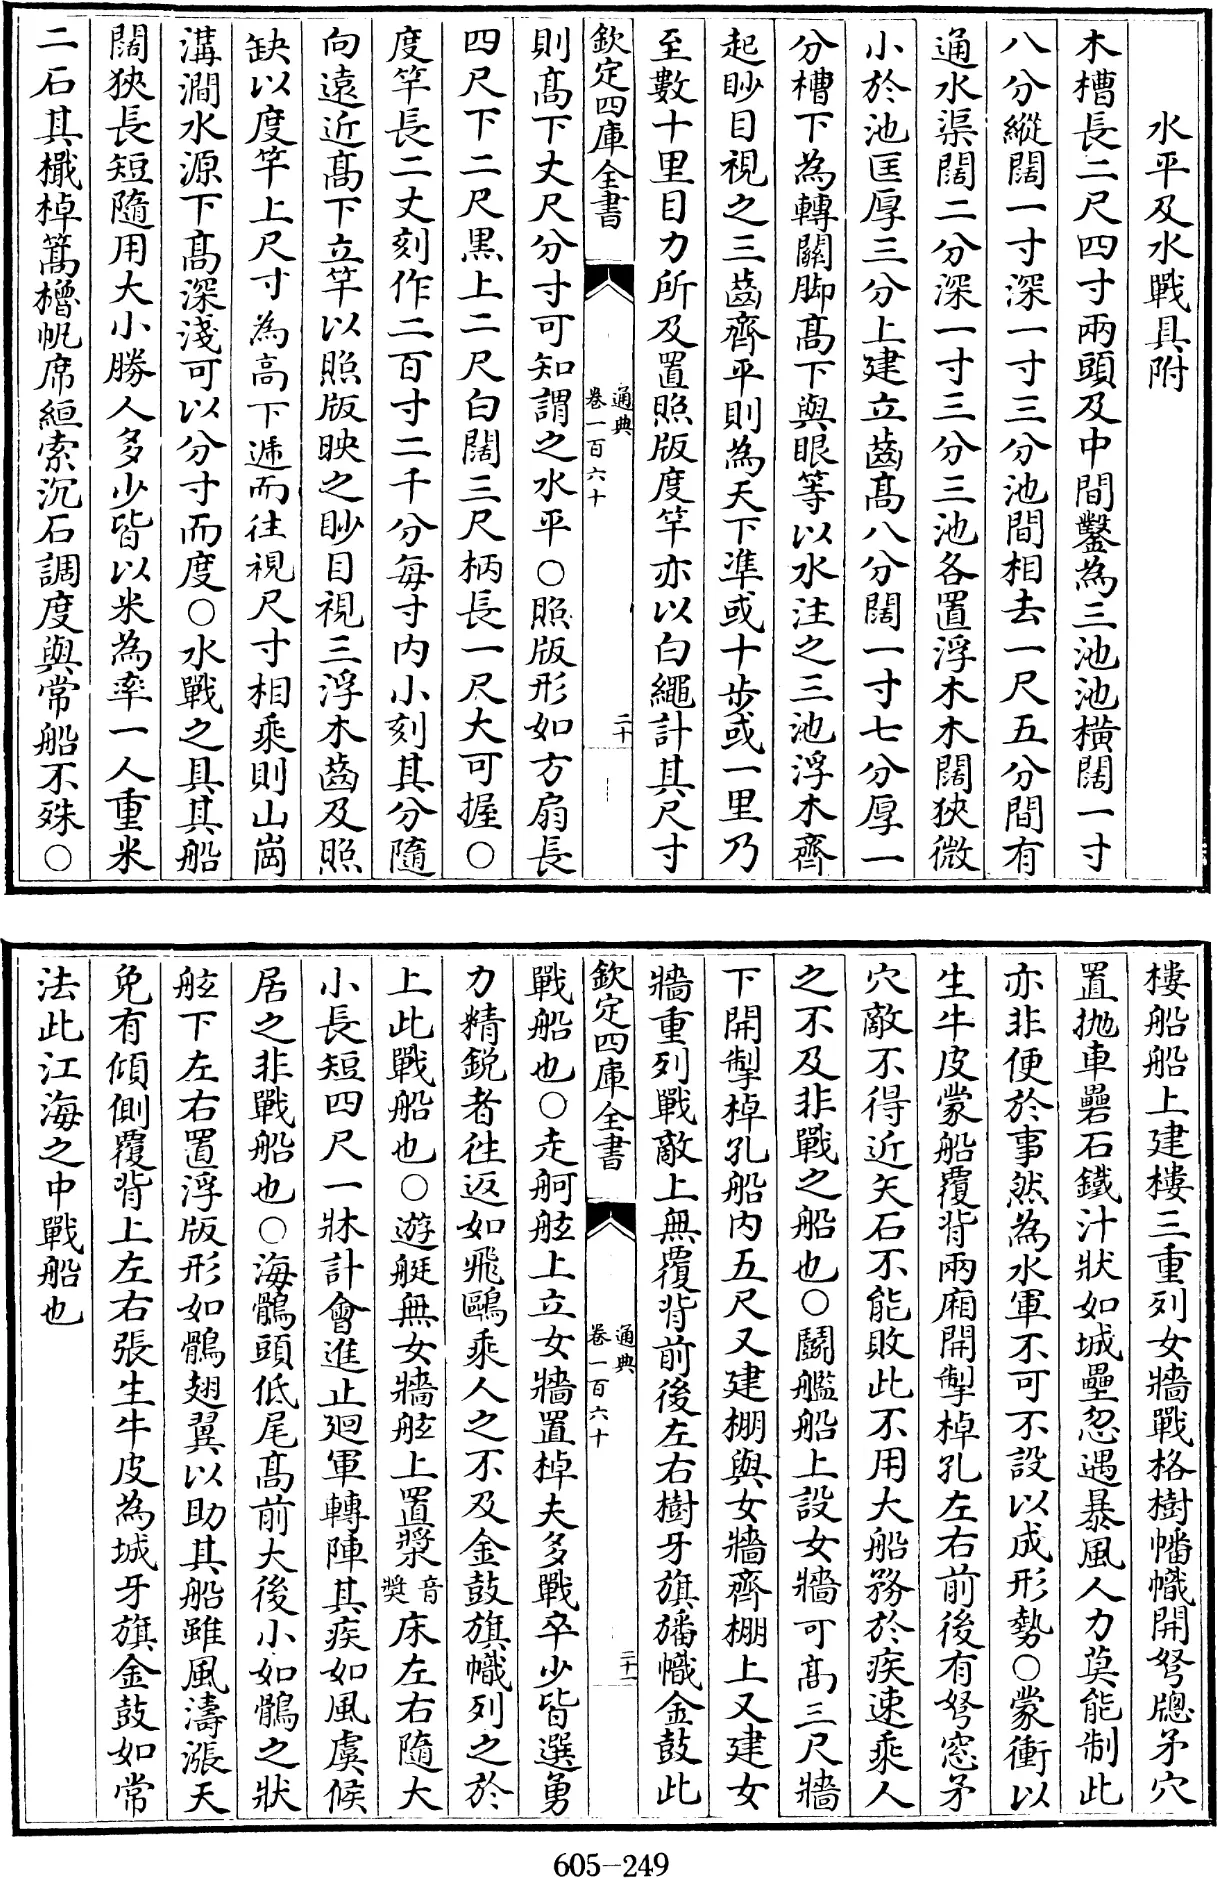 水平及水戰具附
木槽長二尺四寸兩頭及中間鑿為三池池橫闊一寸
八分縱闊一寸深一寸三分池間相去一尺五分間有
通水渠闊二分深一寸三分三池各置浮木木闊狹微
小於池匡厚三分上建立齒髙八分闊一寸七分厚一
分槽下為轉關脚髙下與眼等以水注之三池浮木齊
起眇目視之三齒齊平則為天下準或十步或一里乃
至數十里目力所及置照版度竿亦以白繩計其尺寸
欽定四庫全書
通典
卷一百六十
二十
則髙下丈尺分寸可知謂之水平○照版形如方扇長
四尺下二尺黑上二尺白闊三尺柄長一尺大可握○
度竿長二丈刻作二百寸二千分每寸內小刻其分隨
向遠近髙下立竿以照版映之眇目視三浮木齒及照
缺以度竿上尺寸為高下遞而往視尺寸相乘則山崗
溝澗水源下髙深淺可以分寸而度○水戰之具其船
闊狹長短隨用大小勝人多少皆以米為率一人重米
二石其檝棹篙櫓帆席絙索沉石調度與常船不殊○
樓船船上建樓三重列女牆戰格樹幡幟開弩牎矛穴
置抛車礨石鐵汁狀如城壘忽遇暴風人力莫能制此
亦非便於事然為水軍不可不設以成形勢○蒙衝以
生牛皮蒙船覆背兩廂開掣棹孔左右前後有弩窓矛
穴敵不得近矢石不能敗此不用大船務於疾速乘人
之不及非戰之船也○鬭艦船上設女牆可髙三尺牆
下開掣棹孔船內五尺又建棚與女牆齊棚上又建女
牆重列戰敵上無覆背前後左右樹牙旗旛幟金鼓此
欽定四庫全書
通典
卷一百六十
二十一
戰船也○走舸舷上立女牆置棹夫多戰卒少皆選勇
力精鋭者往返如飛鷗乘人之不及金鼓旗幟列之於
上此戰船也○遊艇無女牆舷上置槳音奬床左右隨大
小長短四尺一牀計會進止廻軍轉陣其疾如風虞候
居之非戰船也○海鶻頭低尾髙前大後小如鶻之狀
舷下左右置浮版形如鶻翅翼以助其船雖風濤漲天
免有傾側覆背上左右張生牛皮為城牙旗金鼓如常
法此江海之中戰船也
605-249